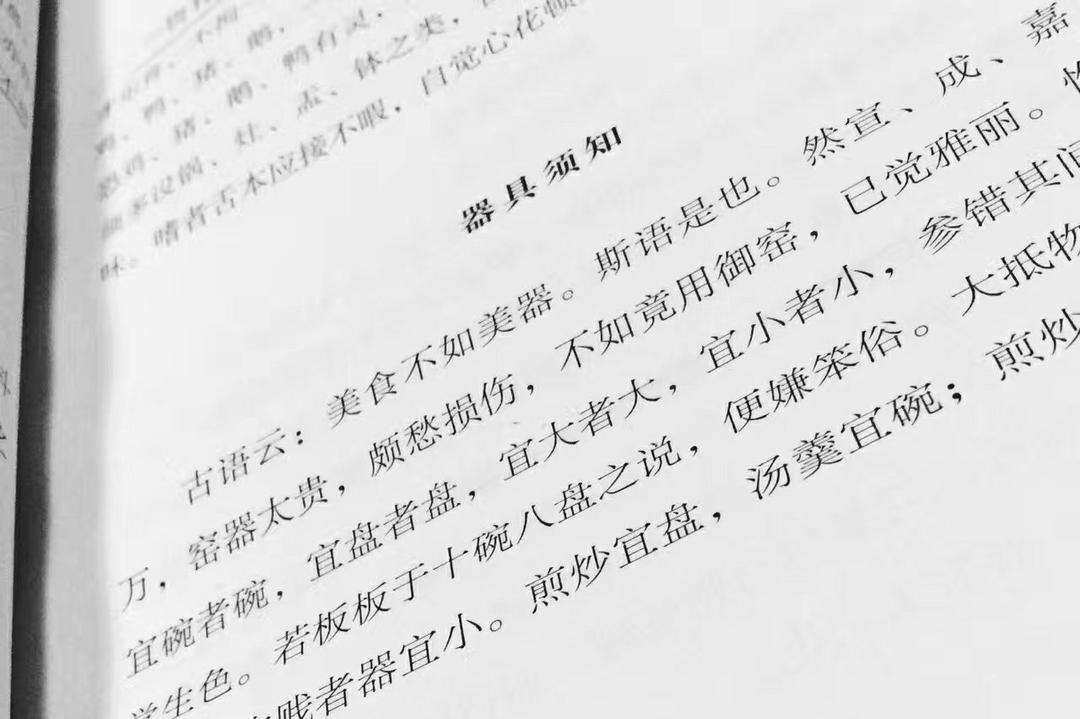 鸡、猪、鹅、鸭有灵，
多设锅、灶、盂、钵之类，
味。嗜者舌本应接不暇，自觉心花顿
器具须知
古语云：美食不如美器。斯语是也。然宣、成、嘉
万，窑器太贵，颇愁损伤，不如竟用御窑，已觉雅丽。
宜碗者碗，宜盘者盘，宜大者大，宜小者小，参错其间
觉生色。若板板于十碗八盘之说，便嫌笨俗。大抵物
贱者器宜小。煎炒宜盘，汤羹宜碗；煎炒